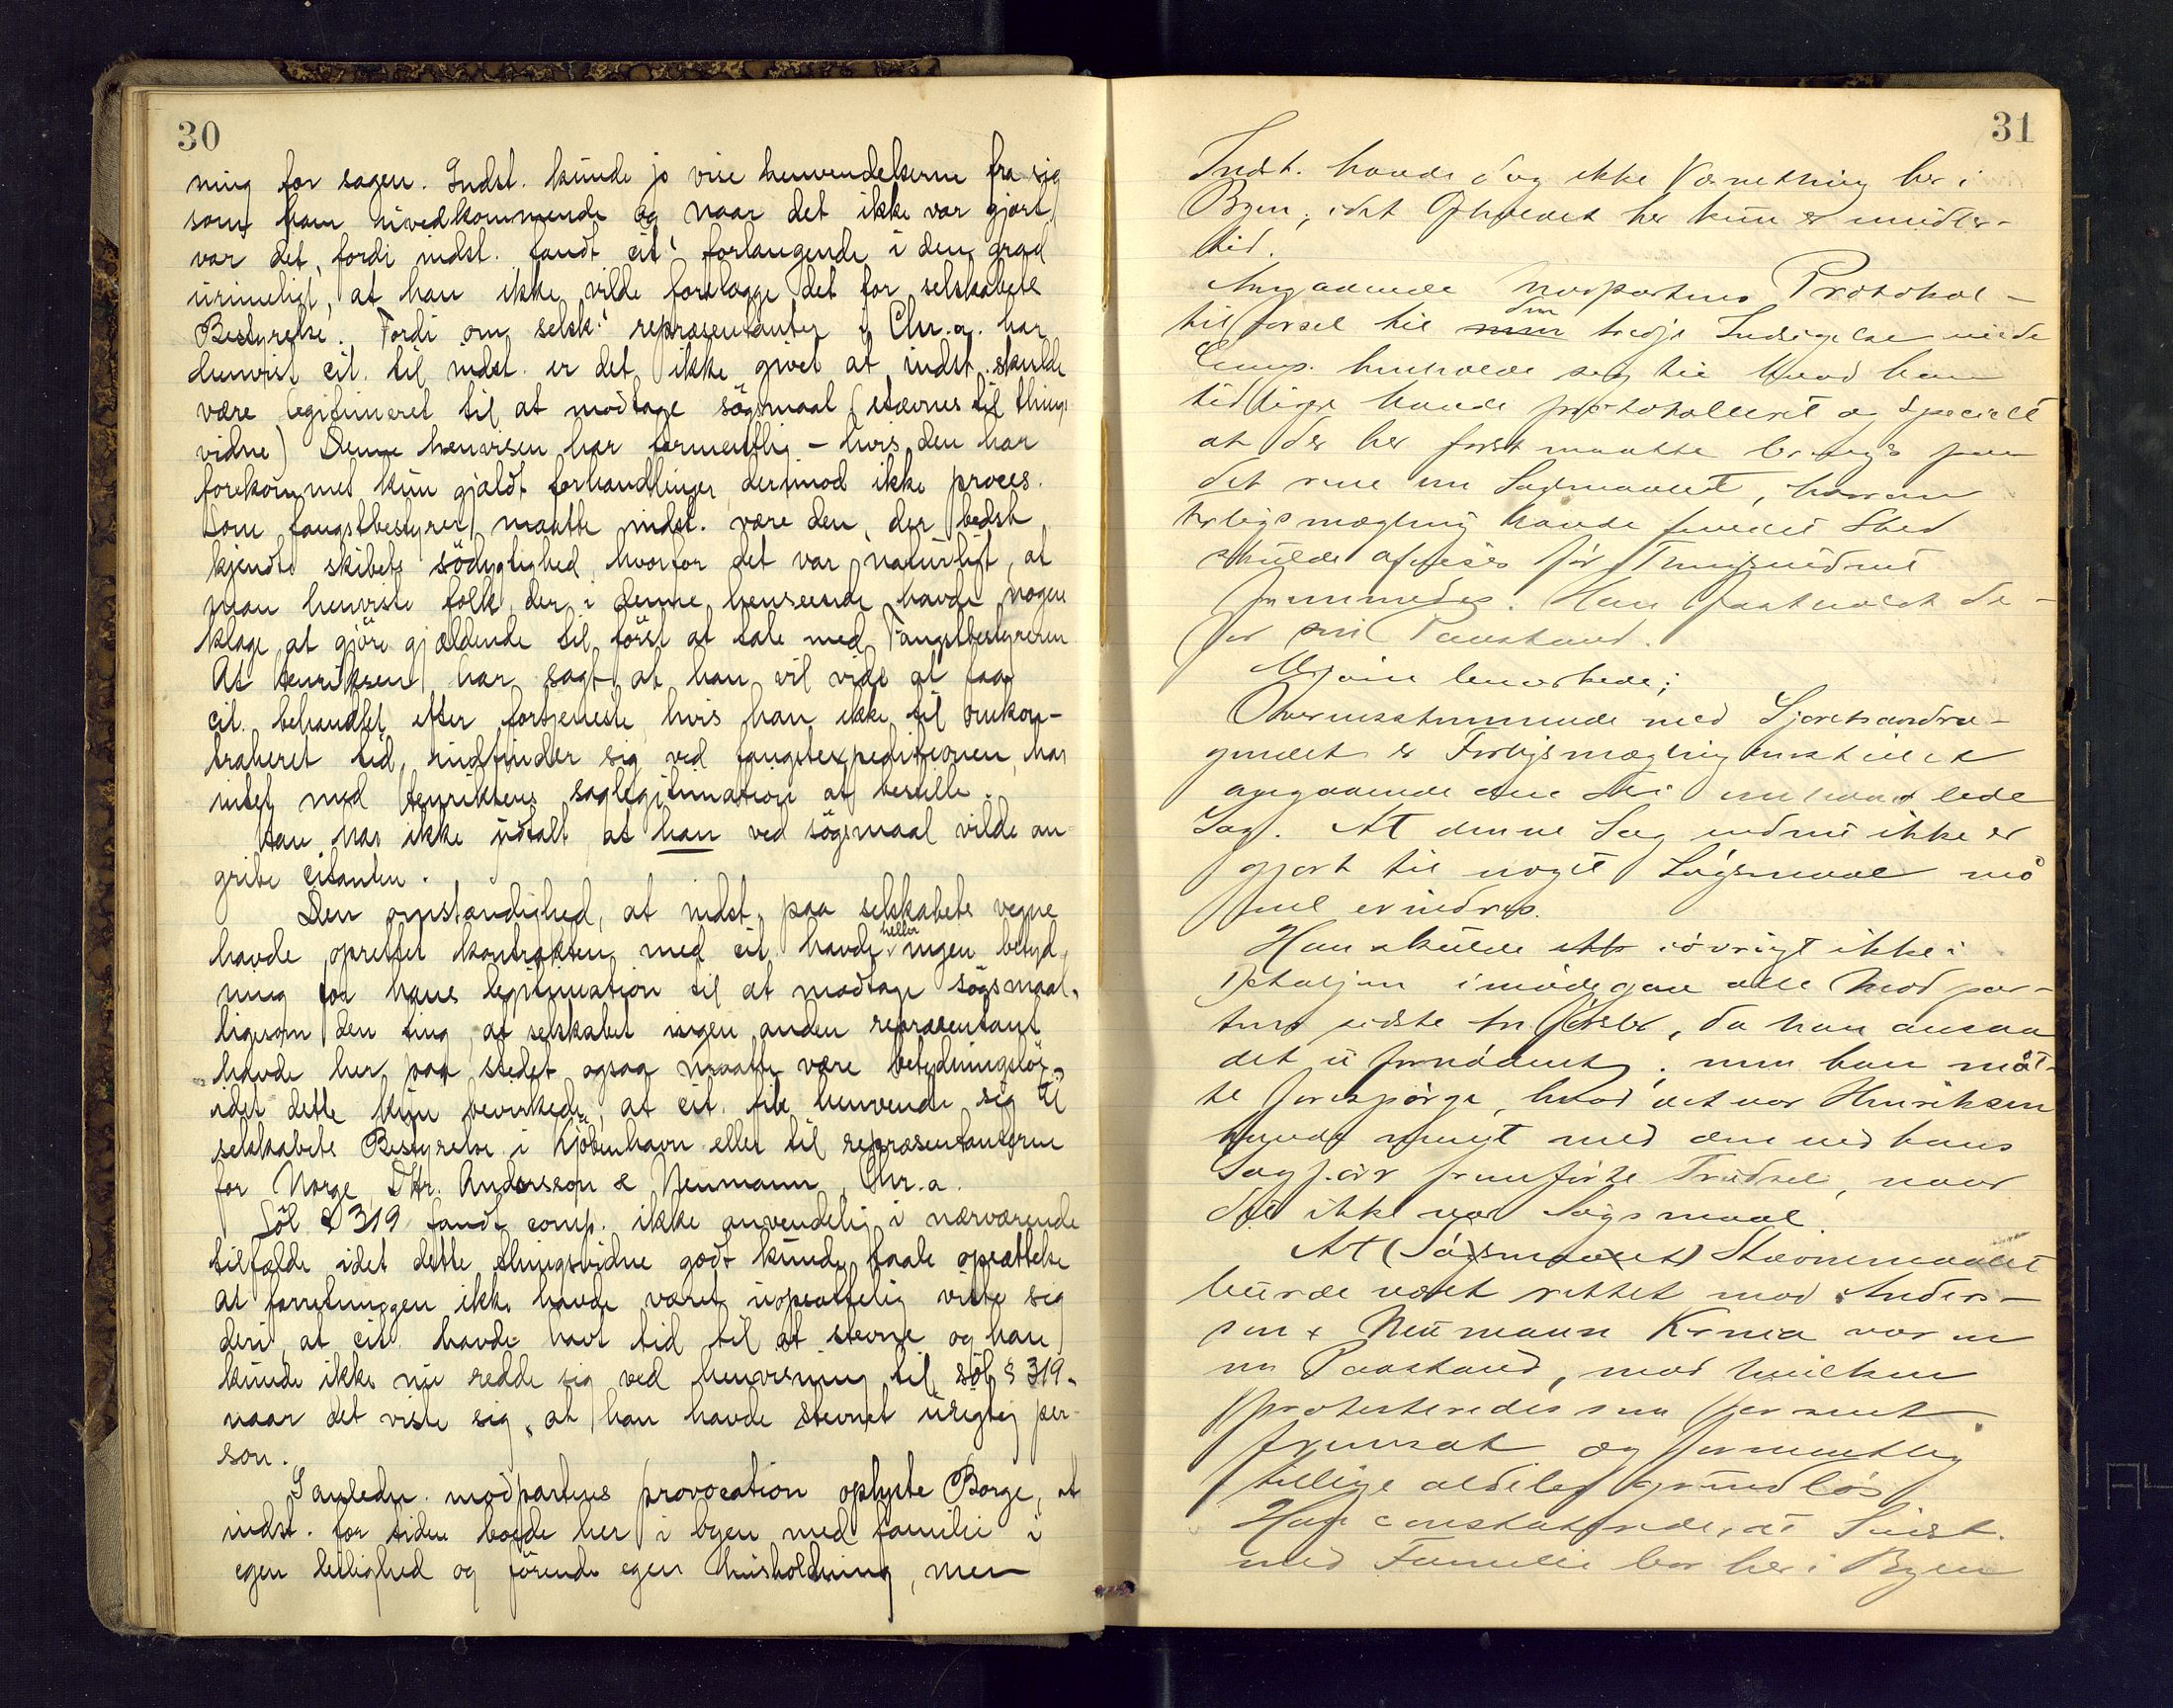 30
ning for sagen. Indst. kunde jo vise henvendelserne fra sig
som ham uvedkommende og naar det ikke var gjort,
var det, fordi indst. fandt cit.s forlangende i den grad
urimeligt, at han ikke vilde forelægge det for selskabets
Bestyrelse. Fordi om selsk.s repræsentanter i Chr.a. har
henvist cit. til indst. er det ikke givet at indst. skulde
være legitimeret til at modtage søgsmaal (stævnes til things
vidne) Denne henvisen har formentlig – hvis den har
forekommet kun gjældt forhandlinger derimod ikke proces.
Som fangstbestyrer maatte indst. være den, der bedst
kjendte skibets södygtighed, hvorfor det var naturligt, at
man henviste folk, der i denne henseende havde nogen
klage at gjöre gjældende til först at tale med Fangstbestyreren
At Henriksen har sagt at han vil vide at faa
cit. behandlet efter fortjeneste hvis han ikke til omkon-
traheret tid, indfinder sig ved fangstexpeditionen, har
intet med Henriksens saglegitimation at bestille.
Han har ikke udtalt at han ved sögsmaal vilde an
gribe citanten.
Den omstændighed, at indst. paa selskabets vegne
havde oprettet kontrakten med cit. havde heller ingen betyd,
ning for hans legitimation til at modtage sögsmaal,
ligesom den ting, at selskabet ingen anden repræsentant
havde her paa stedet ogsaa maatte være betydningslös,
idet dette kun bevirkede, at cit. fik henvende sig til
selskabets Bestyrelse i Kjöbenhavn eller til repræsentanterne
for Norge, DHr. Andersson & Neumann, Chr.a.
Söl. § 319 fandt comp. ikke anvendelig i nærværende
tilfælde idet dette thingsvidne godt kunde taale opsættelse
at forretningen ikke havde været uopsættelig viste sig
deri, at cit. havde havt tid til at stevne og han
kunde ikke nu redde sig ved henvisning til söl § 319.
naar det viste sig, at han havde stevnet urigtig per-
son.
I anledn. modpartens provocation oplyste Borge, at
indst. for tiden boede her i byen med familie i
egen leilighed og förende egen husholdning, men
31
Indst. havde dog ikke Værnething her i
Byen, idet Opholdet her kun er midler-
tid.
Angaaende Modpartens Protokol-
tilførsel til den tredje Indsigelse vilde
Comp. henholde sig til hvad han
tidligere havde protokolleret og specielt
at der her først maatte bringes paa
det rene om Søgsmaalet, hvorom
Forligsmægling havde fundet Sted
skulde afvises før Tingsvidnet
fremmedes. Han fastholdt der-
for sin Paastand.
Mjøen bemærkede;
Overensstemmende med Sjøretsandra-
gendet er Forligsmægling anstillet
angaaende den omhandlede
Sag. At denne Sag endnu ikke er
gjort til noget Søgsmaal må
vel erindres.
Han skulde iøvrigt ikke i
Detaljen imødegaa alle Modpar-
tens sidste tilførsler, da han ansaa
det ufornødent; men han måt-
te forespørge, hvad det var Henriksen
havde ment med den ved hans
Sagfører fremførte Trudsel, naar
det ikke var Søgsmaal.
At (Søgsmaalet) Stævnemaalet
burde været rettet mod Anders-
son & Neumann Krnia var en
ny Paastand, mod hvilken
protesteredes som for sent
fremsat og formentlig
tillige aldeles grundløs
Han constaterede, at Indst.
med Familie bor her i Byen